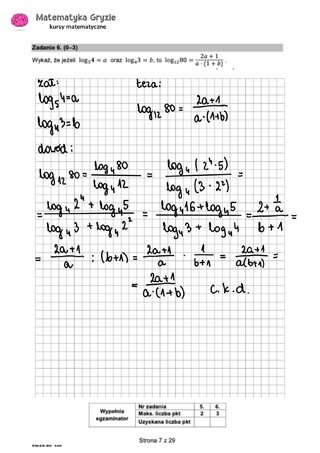 Matematyka Gryzie
kursy matematyczne
Zadanie 6. (0–3)
Wykaż, że jeżeli log₅4 = a oraz log₄3 = b, to log₁₂80 = (2a + 1)/(a · (1 + b)) .
zał: teza:
log₅4=a log₁₂80 = (2a+1)/(a·(1+b))
log₄3=b
dowód:
log₁₂80 = log₄80/log₄12 = log₄(2⁴·5)/log₄(3·2²) =
= (log₄2⁴ + log₄5)/(log₄3 + log₄2²) = (log₄16+log₄5)/(log₄3 + log₄4) = (2+1/a)/(b+1) =
= (2a+1)/a : (b+1) = (2a+1)/a · 1/(b+1) = (2a+1)/(a(b+1)) =
= (2a+1)/(a·(1+b)) c.k.d.
Wypełnia egzaminator Nr zadania 5. 6.
Maks. liczba pkt 2 3
Uzyskana liczba pkt
Strona 7 z 29